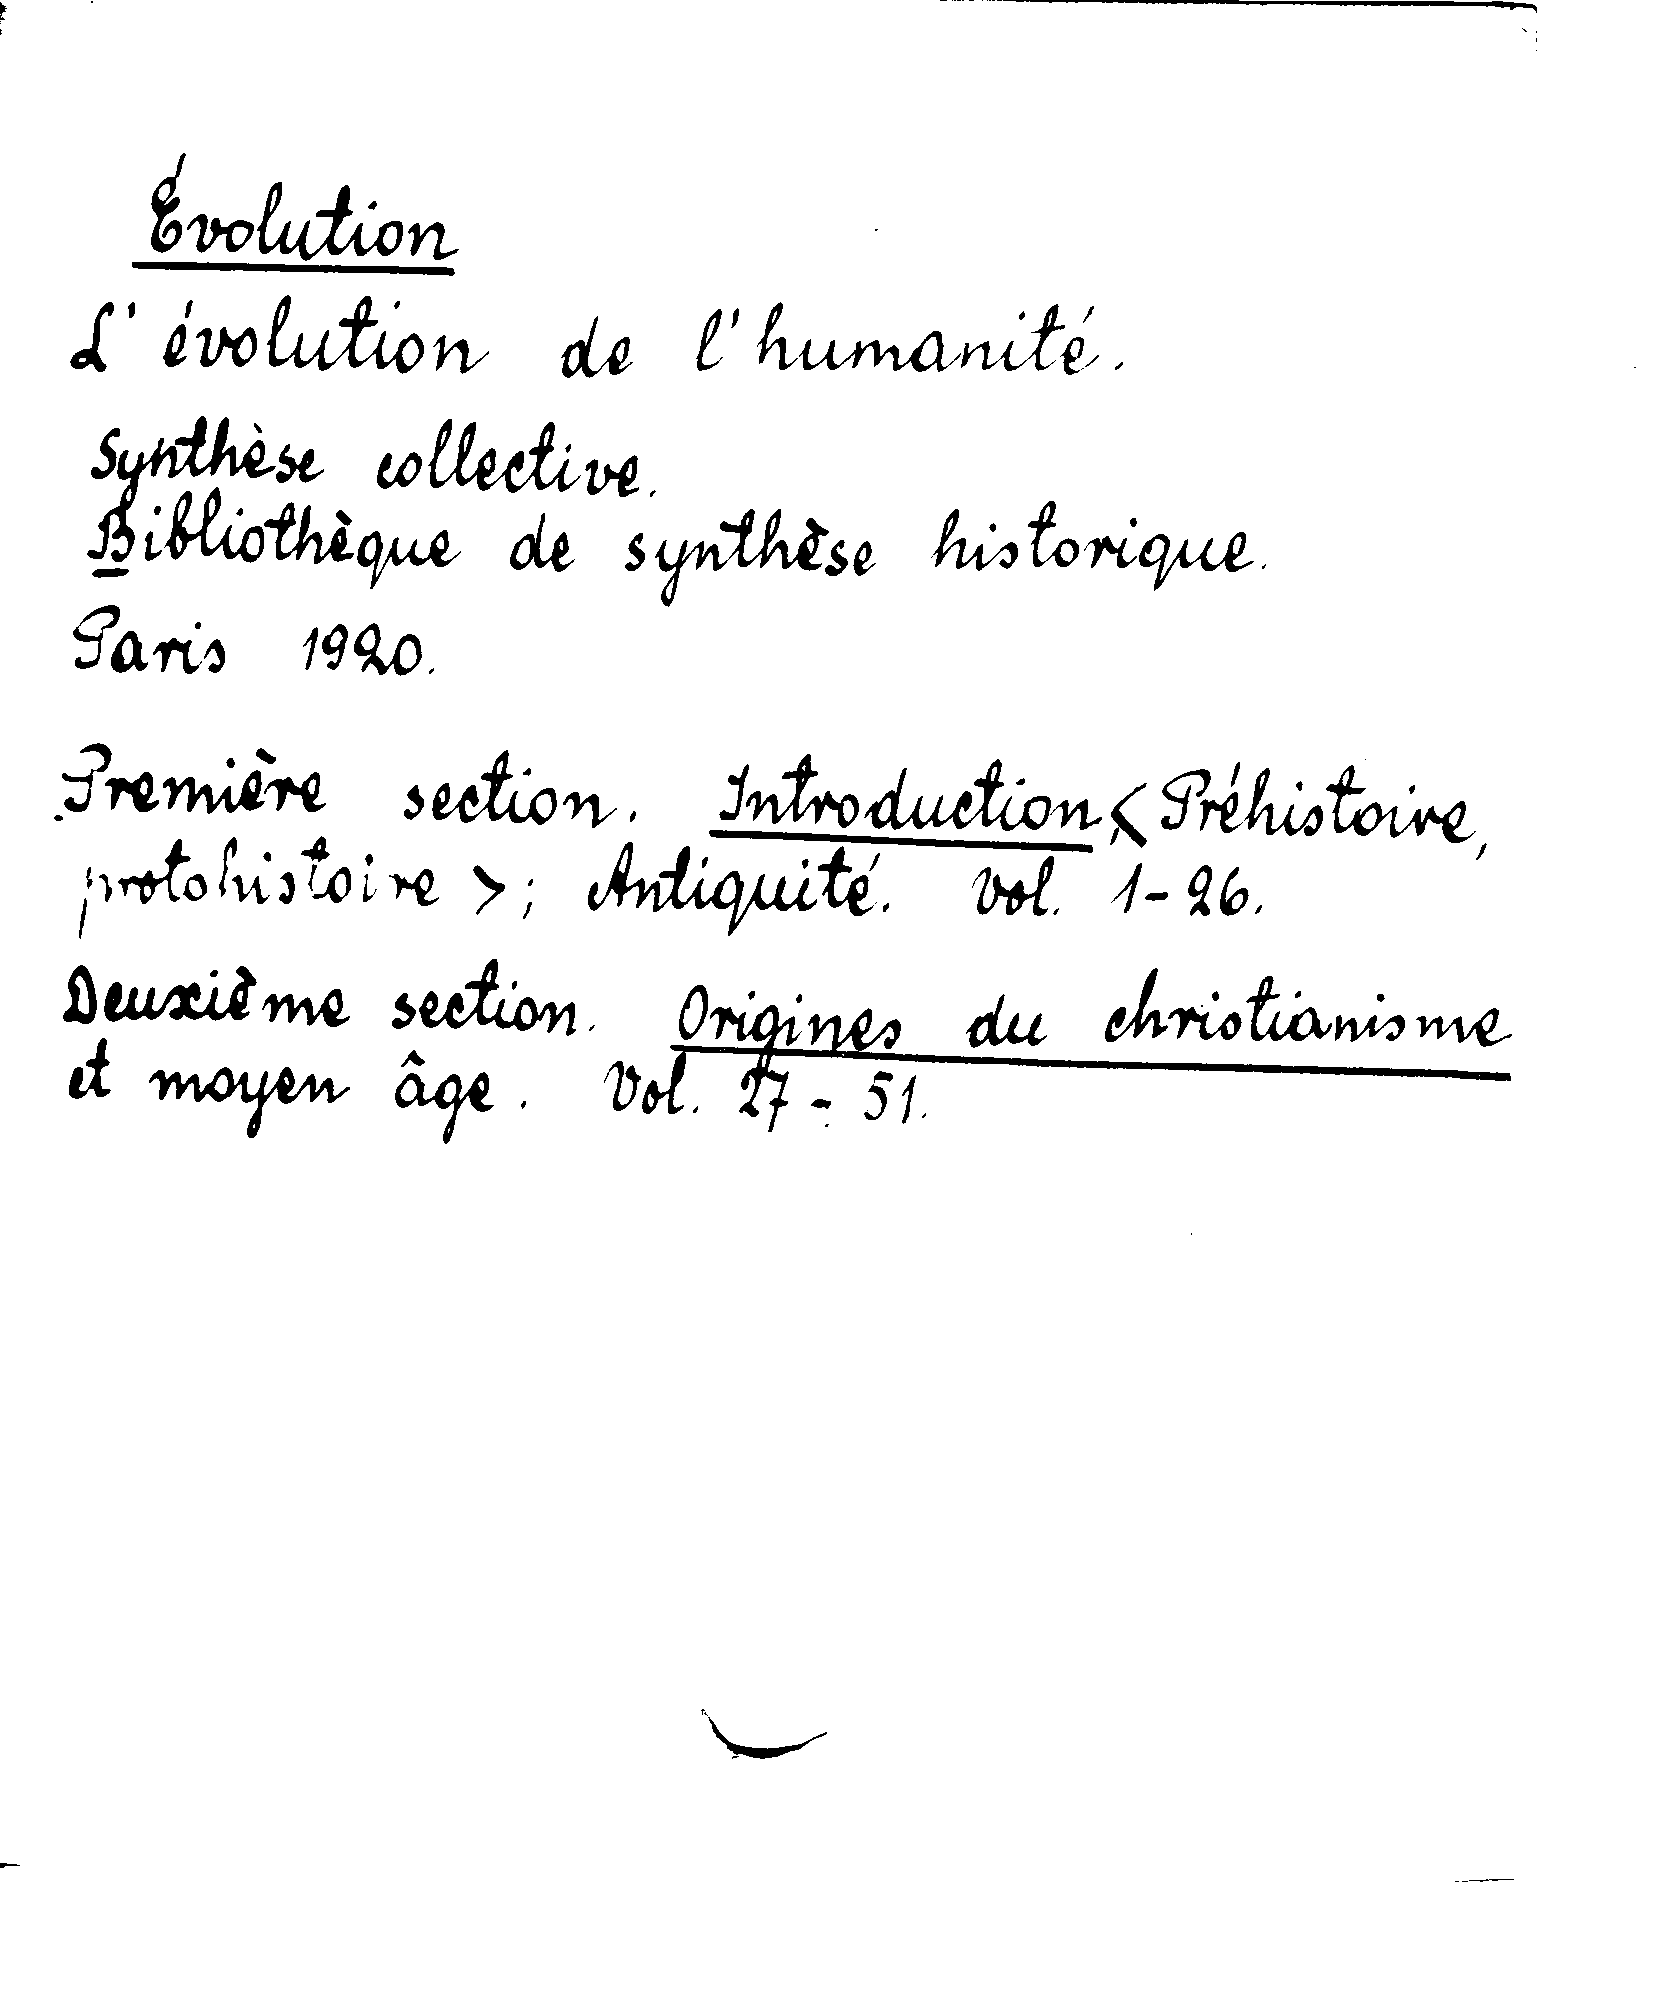 Évolution
L'évolution de l'humanité.
Synthèse collective.
Bibliothèque de synthèse historique.
Paris 1920.
Première section. Introduction < Préhistoire,
protohistoire >; Antiquité. Vol. 1-26.
Deuxième section. Origines du christianisme
et moyen âge. Vol. 27-51.